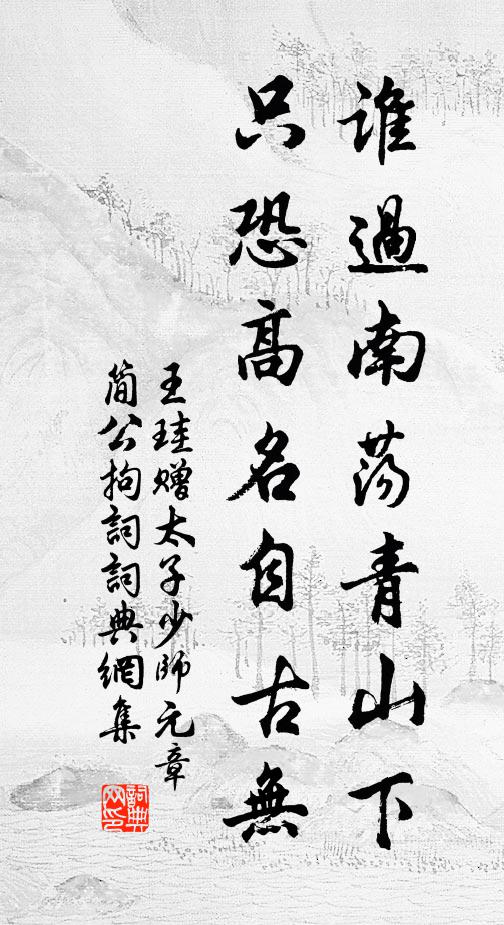 誰過南蕩青山下
只恐高名自古無
王珪贈太子少師元章
簡公拘詞詞典網集
詞典
网印